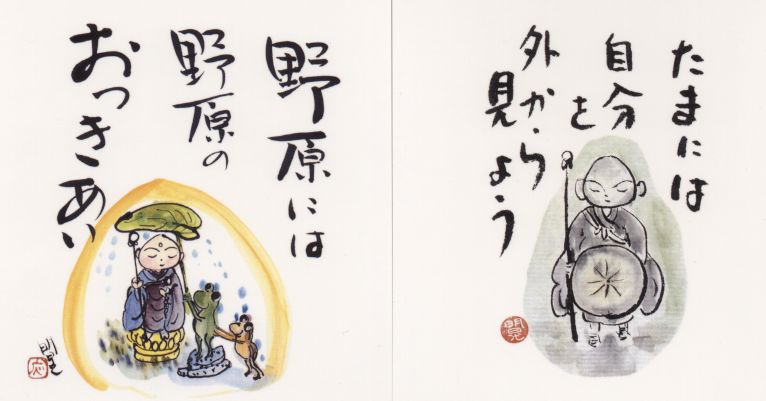 野原には
野原の
おつきあい
たまには
自分を
外から
見よう